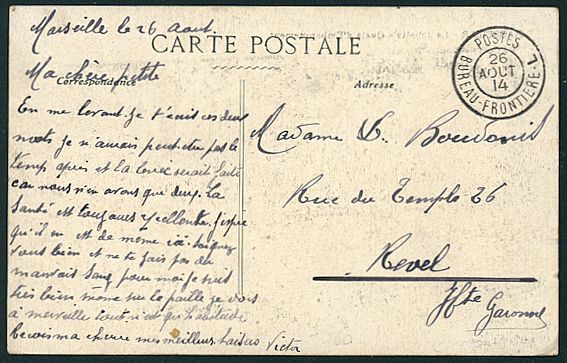 Marseille le 26 Aout
CARTE POSTALE
Ma chère petite
Correspondance
Adresse
En me levant je t'écris ces deux
mots je n'aurais peut-être pas le
temps après et la levée serait faite
car nous n'en avons que deux. La
santé est toujours excellente j'espère
qu'il en est de même là. Soignez
vous bien et ne te fais pas de
mauvais sang pour moi je suis
très bien même sur la paille je dors
à merveille tout n'est que l'habitude
ma chère mes meilleurs baisers Victor
POSTES
26
AOUT
14
BUREAU-FRONTIERE-L
Madame V. Boudonis
Rue du Temple 26
Revel
Hte Garonne